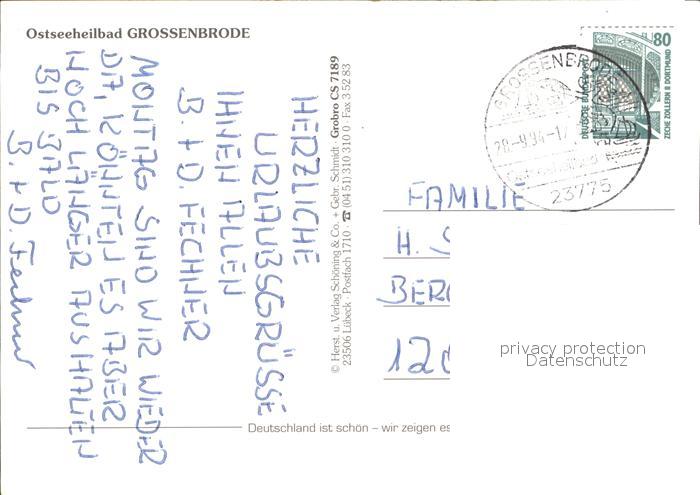 Ostseeheilbad GROSSENBRODE
HERZLICHE
URLAUBSGRÜSSE
IHNEN ALLEN
B. + D. FECHNER
MONTAG SIND WIR WIEDER
DA, KÖNNTEN ES ABER
NOCH LÄNGER AUSHALTEN
BIS BALD
B. + D. Fechner
© Herst. u. Verlag Schöning & Co. + Gebr. Schmidt · Grobro CS 7189
23506 Lübeck · Postfach 1710 · ☎ (04 51) 310 310 0 · Fax 3 52 83
Deutschland ist schön – wir zeigen es
80
DEUTSCHE BUNDESPOST
ZECHE ZOLLERN II DORTMUND
GROSSENBRODE
28.-9.94-17
Ostseeheilbad
23775
FAMILIE
H. S
BER
120
privacy protection
Datenschutz